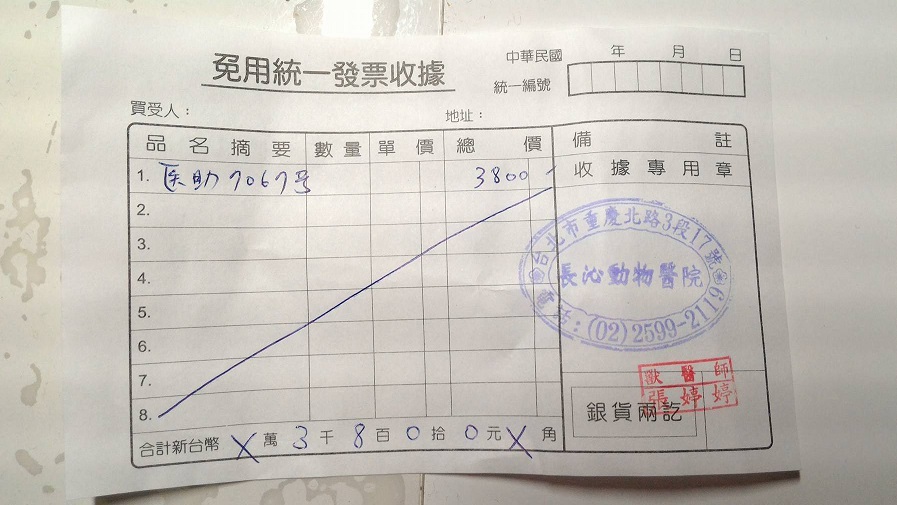 免用統一發票收據
中華民國 年 月 日
統一編號
買受人：
地址：
品名摘要 數量 單價 總價 備註
1. 医助7067号 3800
收據專用章
2.
3.
4.
5.
6.
7.
8.
台北市重慶北路3段17號
長沁動物醫院
電話：(02)2599-2119
獸醫師
張婷婷
銀貨兩訖
合計新台幣 X 萬 3 千 8 百 0 拾 0 元 X 角